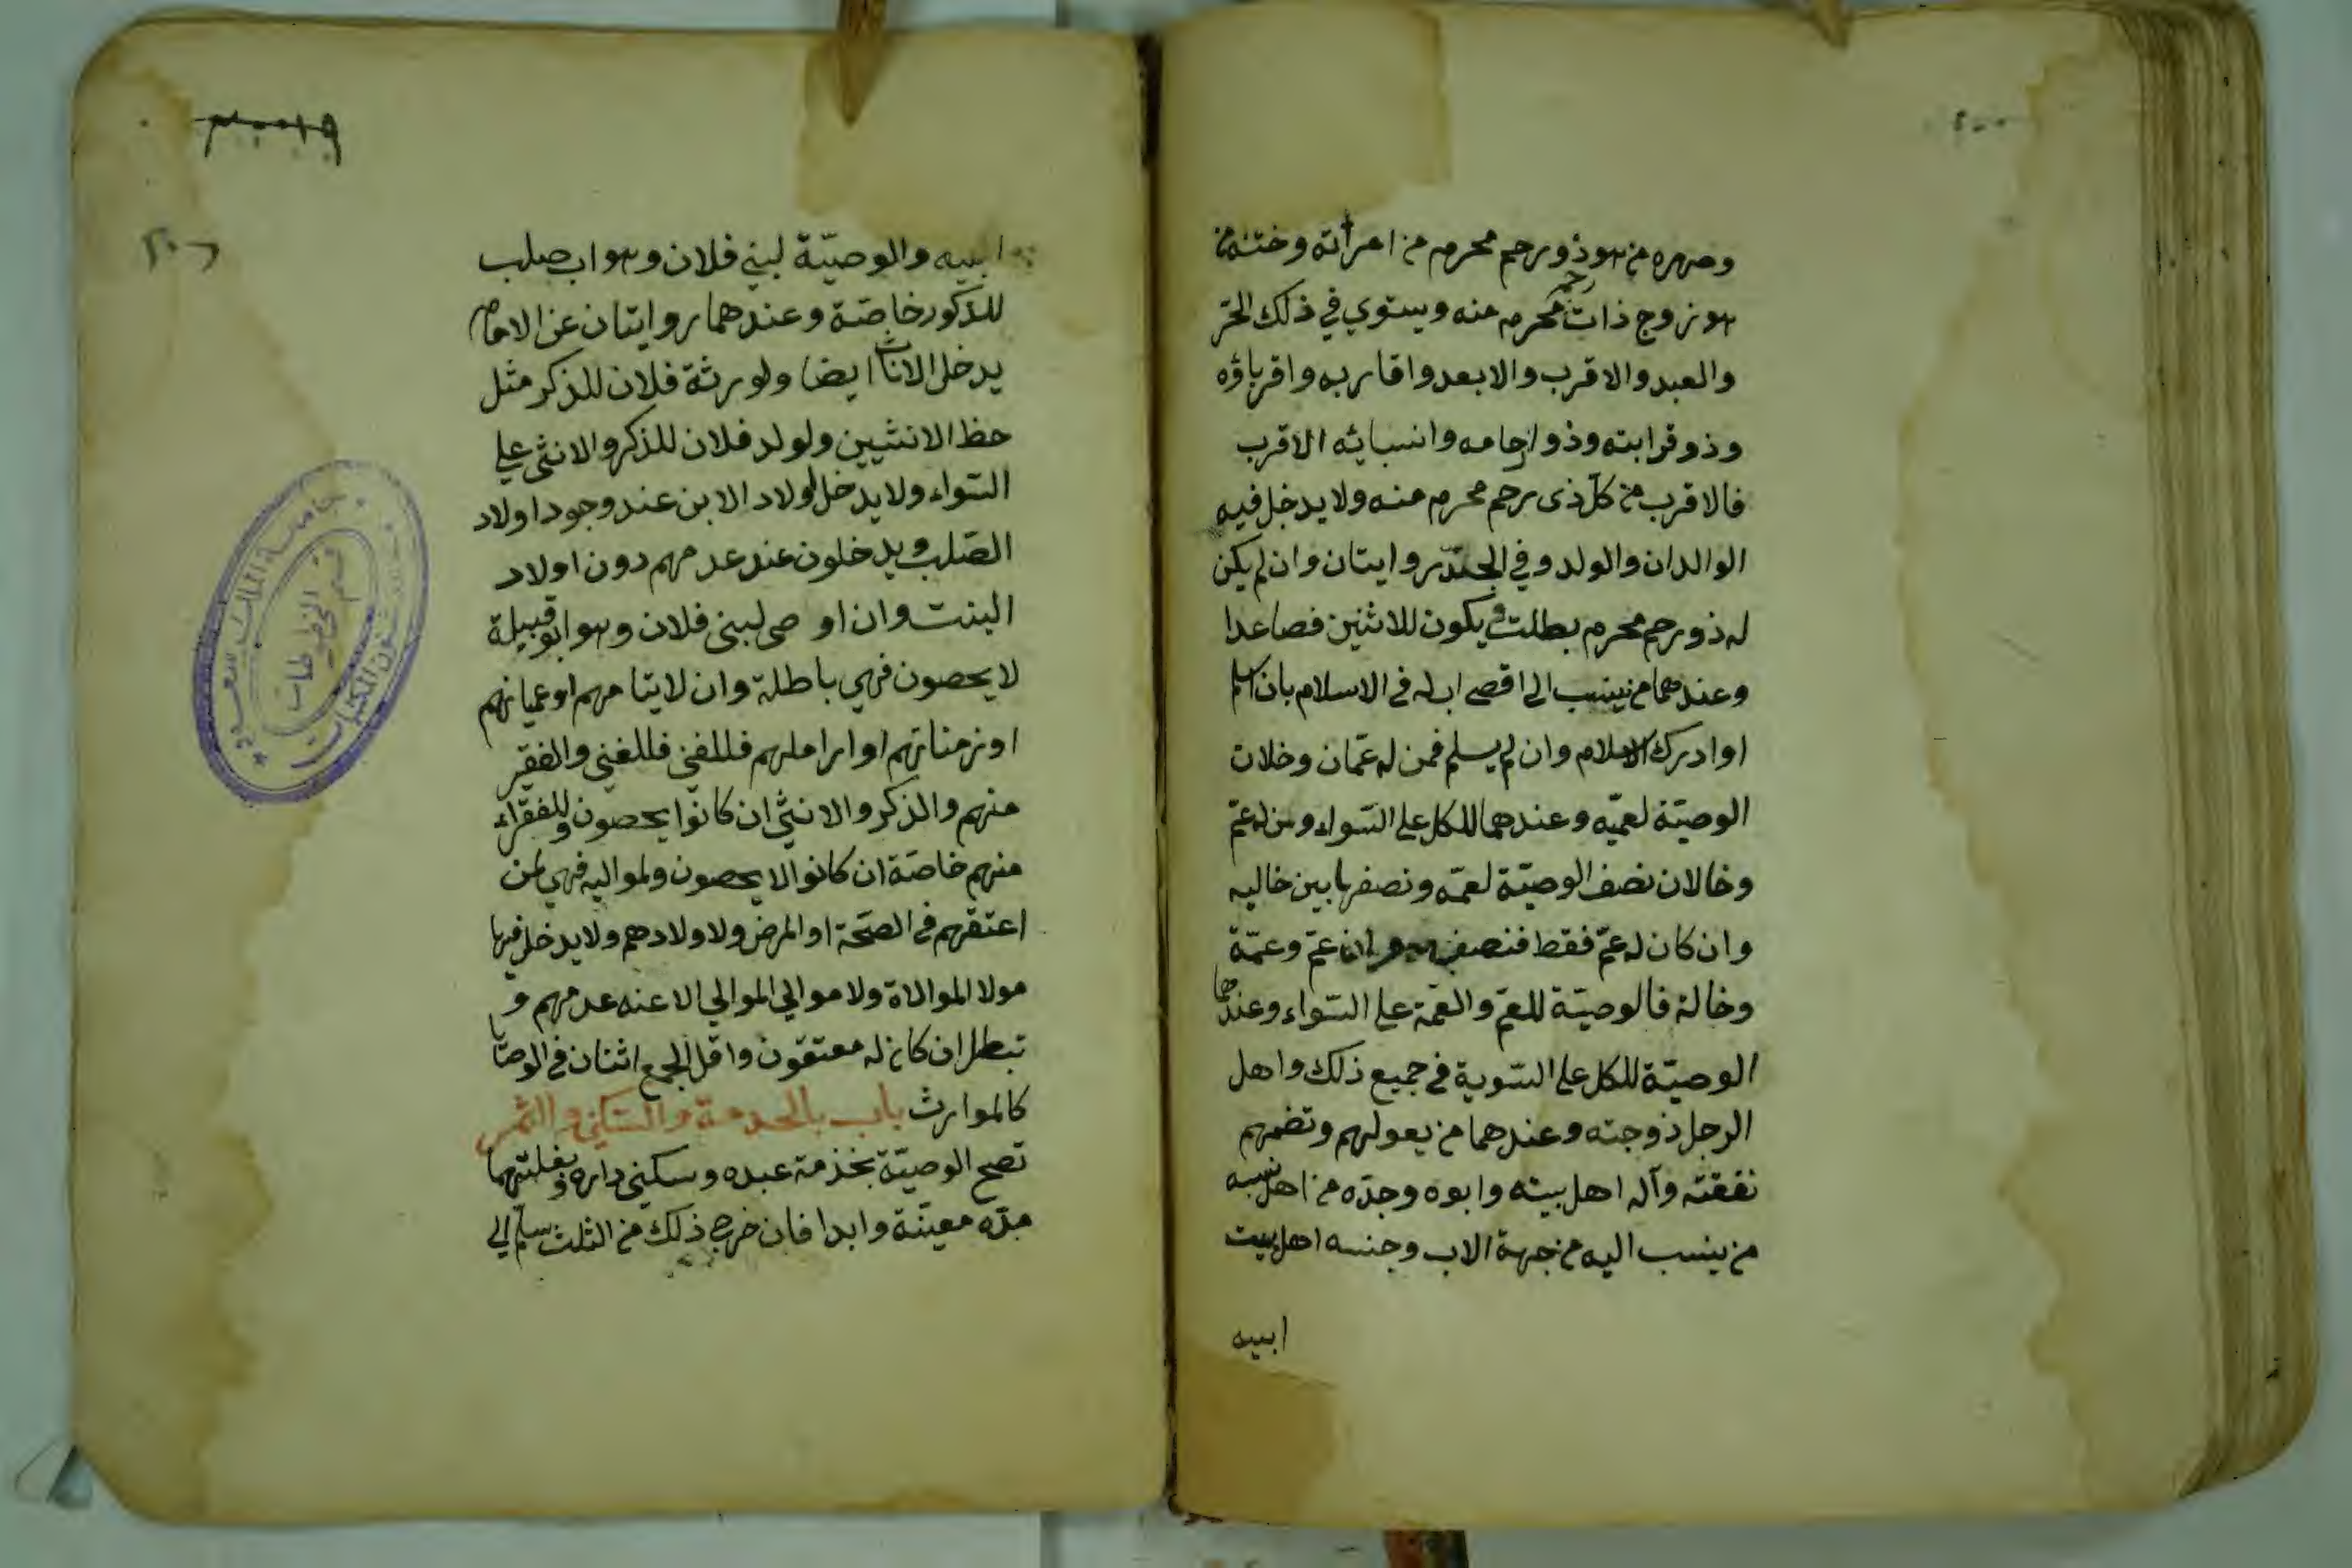 وصهره من هو ذو رحم محرم من امرأته وختنه من
هو زوج ذات رحم محرم منه ويستوي في ذلك الحرّ
والعبد والاقرب والابعد واقاربه واقرباؤه
وذو قرابته وذوارحامه وانسبائه الاقرب
فالاقرب من كلّ ذى رحم محرم منه ولا يدخل فيه
الوالدان والولد وفي الجدّ روايتان وان لم يكن
له ذو رحم محرم بطلت ويكون للاثنين فصاعدا
وعندهما من ينسب الى اقصى اب له فى الاسلام بان اسلم
او ادرك الاسلام وان لم يسلم فمن له عمّان وخلان
الوصيّة لعميّه وعندهما للكل على السّواء ومن له عمّ
وخالان نصف الوصيّة لعمّه ونصفها بين خاليه
وان كان له عمّ فقط فنصفها وان عمّ وعمّة
وخالة فالوصيّة للعمّ والعمّة على السّواء وعندهما
الوصيّة للكل على السّوية فى جميع ذلك واهل
الرجل ذوجته وعندهما من يعولهم وتضمهم
نفقته وآله اهل بيته وابوه وجدّه من اهل بيته
من ينسب اليه من جهة الاب وجنسه اهل بيت
ابيه
ابيه والوصيّة لبني فلان وهو اب صلب
للذكور خاصّة وعندهما روايتان عن الامام
يدخل الاناث ايضا ولورثة فلان للذكر مثل
حظ الانثيين ولولد فلان للذكر والانثى على
السّواء ولا يدخل اولاد الابن عند وجود اولاد
الصّلب ويدخلون عند عدمهم دون اولاد
البنت وان اوصى لبنى فلان وهو ابو قبيلة
لا يحصون فهي باطلة وان لايتامهم او عميانهم
او زمناتهم او اراملهم فللغني فللغني والفقير
منهم والذكر والانثى ان كانوا يحصون وللفقراء
منهم خاصّة ان كانوا لا يحصون ولمواليه فهي لمن
اعتقهم فى الصّحة او المرض ولاولادهم ولا يدخل فيها
مولا الموالاة ولا موالي الموالي الا عنه عدمهم و
تبطل ان كان له معتقون واقل الجمع اثنان فى الوصايا
كالموارث باب بالخدمة والسّكنى والثّمر
تصح الوصيّة بخذمة عبده وسكنى داره وبغلتهما
مدّه معيّنة وابدا فان خرج ذلك من الثلث سلّم الى
جامعة الملك سعود
قسم المخطوطات
شئون المكتبات